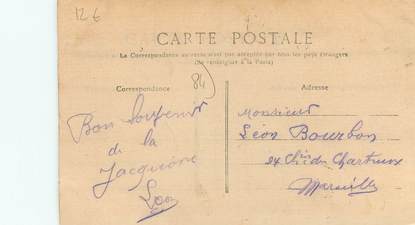 12 €
CARTE POSTALE
La Correspondance au recto n'est pas acceptée par tous les pays étrangers
(Se renseigner à la Poste)
84
Correspondance
Adresse
Bon Souvenir
de la
Léon
Monsieur
Léon Bourbon
24 Ch<sup>in</sup> des Chartreux
Marseille